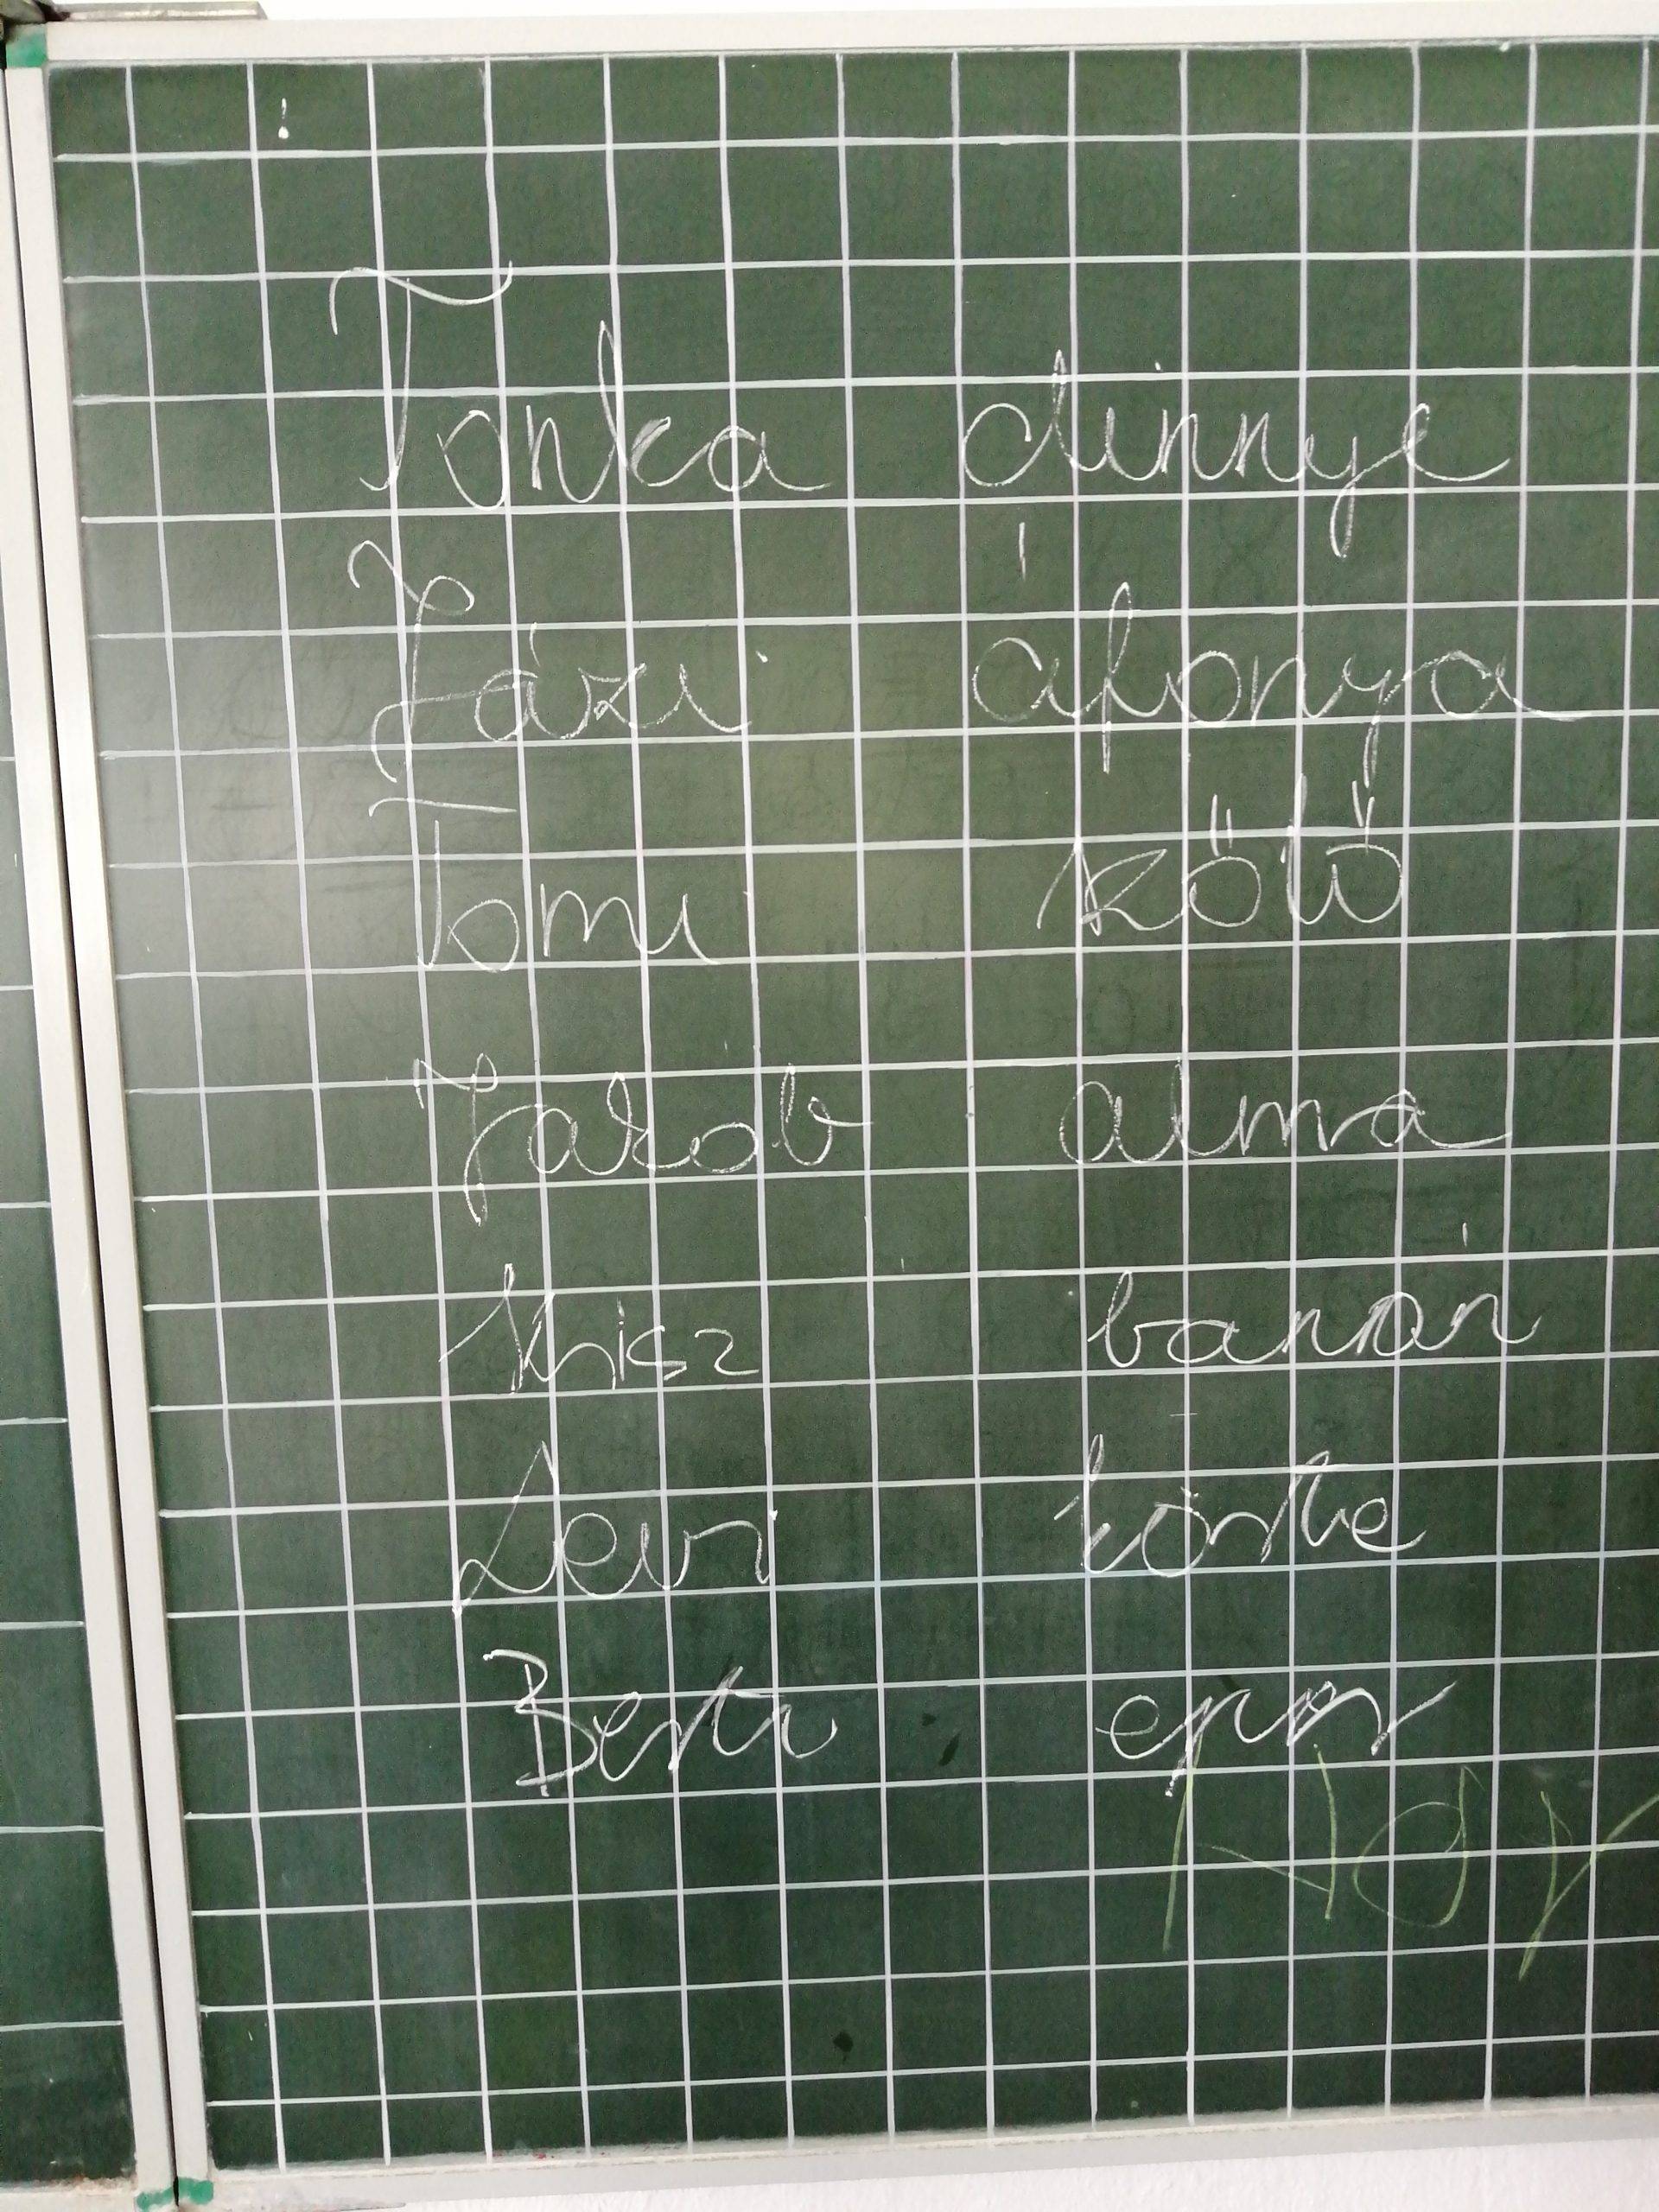 Tonka dinnye
Jázi áfonya
Tomi kötő
Jakob alma
Krisz banán
Levi körte
Berti eper